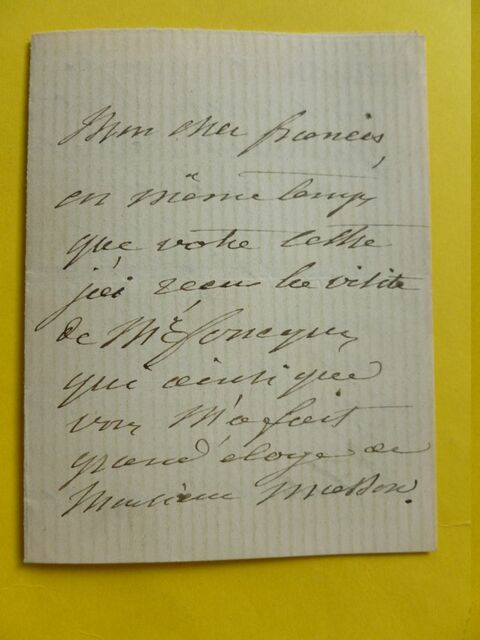 Mon cher francis,
en même temps
que votre lettre
j'ai reçu la visite
de Mr
qui ainsi que
vous m'a fait
grand éloge de
Monsieur Masson.